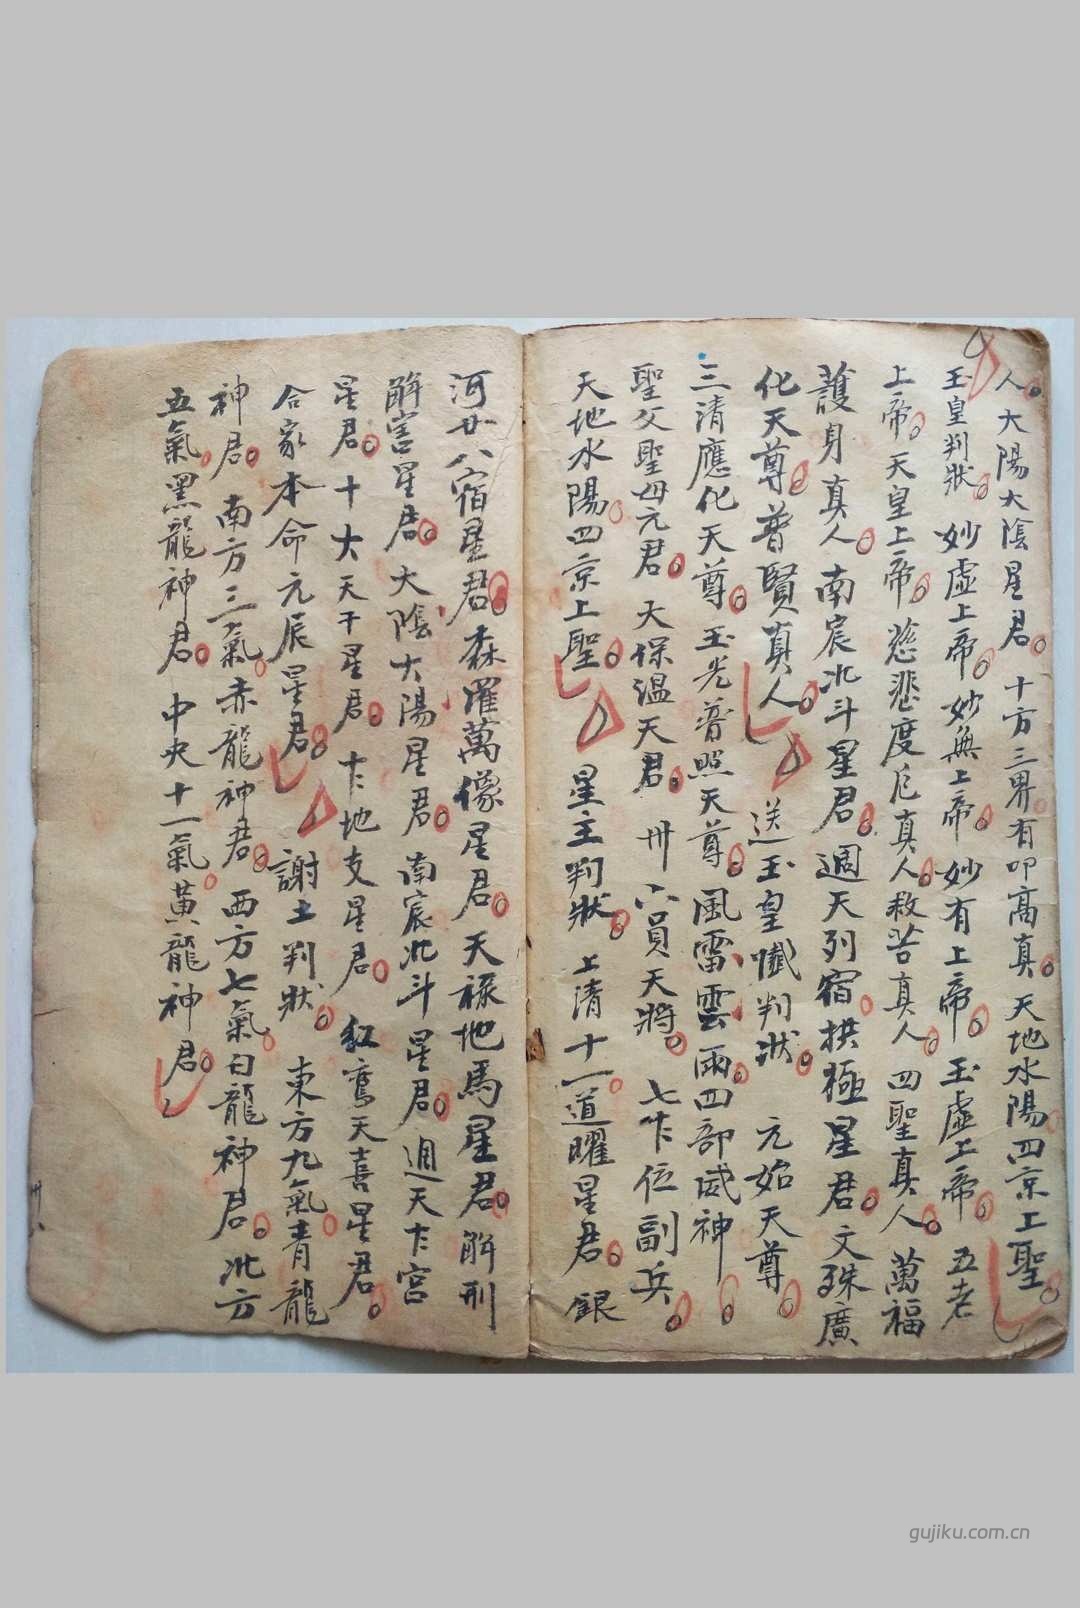 人大陽大陰星君十方三界有叩高真天地水陽四京上聖
玉皇判狀 妙虛上帝妙無上帝妙有上帝玉虛上帝 五老
上帝天皇上帝慈悲度厄真人救苦真人四聖真人萬福
護身真人南宸北斗星君週天列宿拱極星君文殊廣
化天尊普賢真人 送玉皇懺判狀 元始天尊
三清應化天尊玉光普照天尊風雷雲雨四部威神
聖父聖母元君天保溫天君卅六員天將七十位副兵
天地水陽四京上聖 星主判狀上清十一道曜星君銀
河廿八宿星君森羅萬像星君天祿地馬星君解刑
解害星君大陰大陽星君南宸北斗星君週天十宮
星君十大天干星君十地支星君紅鸞天喜星君
合家本命元辰星君 謝土判狀 東方九氣青龍
神君南方三氣赤龍神君西方七氣白龍神君北方
五氣黑龍神君中央十一氣黃龍神君
gujiku.com.cn